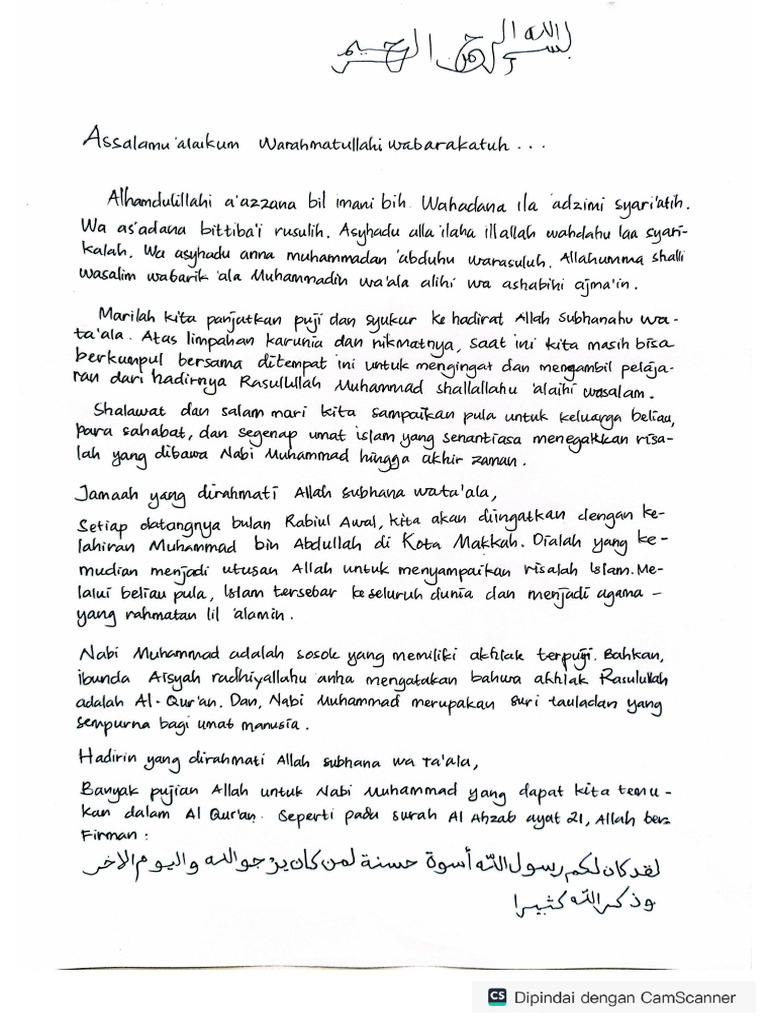 بسم الله الرحمن الرحيم
Assalamu'alaikum Warahmatullahi wabarakatuh . . .
Alhamdulillahi a'azzana bil imani bih. Wahadana ila 'adzimi syari'atih.
Wa as'adana bittiba'i rusulih. Asyhadu alla ilaha illallah wahdahu laa syari-
kalah. Wa asyhadu anna muhammadan 'abduhu warasuluh. Allahumma shalli
wasalim wabarik 'ala Muhammadin wa'ala alihi wa ashabihi ajma'in.
Marilah kita panjatkan puji dan syukur ke hadirat Allah Subhanahu wa-
ta'ala. Atas limpahan karunia dan nikmatnya, saat ini kita masih bisa
berkumpul bersama ditempat ini untuk mengingat dan mengambil pelaja-
ran dari hadirnya Rasulullah Muhammad shallallahu 'alaihi wasalam.
Shalawat dan salam mari kita sampaikan pula untuk keluarga beliau,
para sahabat, dan segenap umat islam yang senantiasa menegakkan risa-
lah yang dibawa Nabi Muhammad hingga akhir zaman.
Jamaah yang dirahmati Allah subhana wata'ala,
Setiap datangnya bulan Rabiul Awal, kita akan diingatkan dengan ke-
lahiran Muhammad bin Abdullah di Kota Makkah. Dialah yang ke-
mudian menjadi utusan Allah untuk menyampaikan risalah Islam. Me-
lalui beliau pula, Islam tersebar keseluruh dunia dan menjadi agama -
yang rahmatan lil 'alamin.
Nabi Muhammad adalah sosok yang memiliki akhlak terpuji. Bahkan,
ibunda Aisyah radhiyallahu 'anha mengatakan bahwa akhlak Rasulullah
adalah Al-Qur'an. Dan, Nabi Muhammad merupakan suri tauladan yang
sempurna bagi umat manusia.
Hadirin yang dirahmati Allah subhana wa ta'ala,
Banyak pujian Allah untuk Nabi Muhammad yang dapat kita temu-
kan dalam Al Qur'an. Seperti pada surah Al Ahzab ayat 21, Allah ber
Firman :
لقد كان لكم رسول الله أسوة حسنة لمن كان يرجو الله واليوم الآخر
وذكر الله كثيرا
CS Dipindai dengan CamScanner